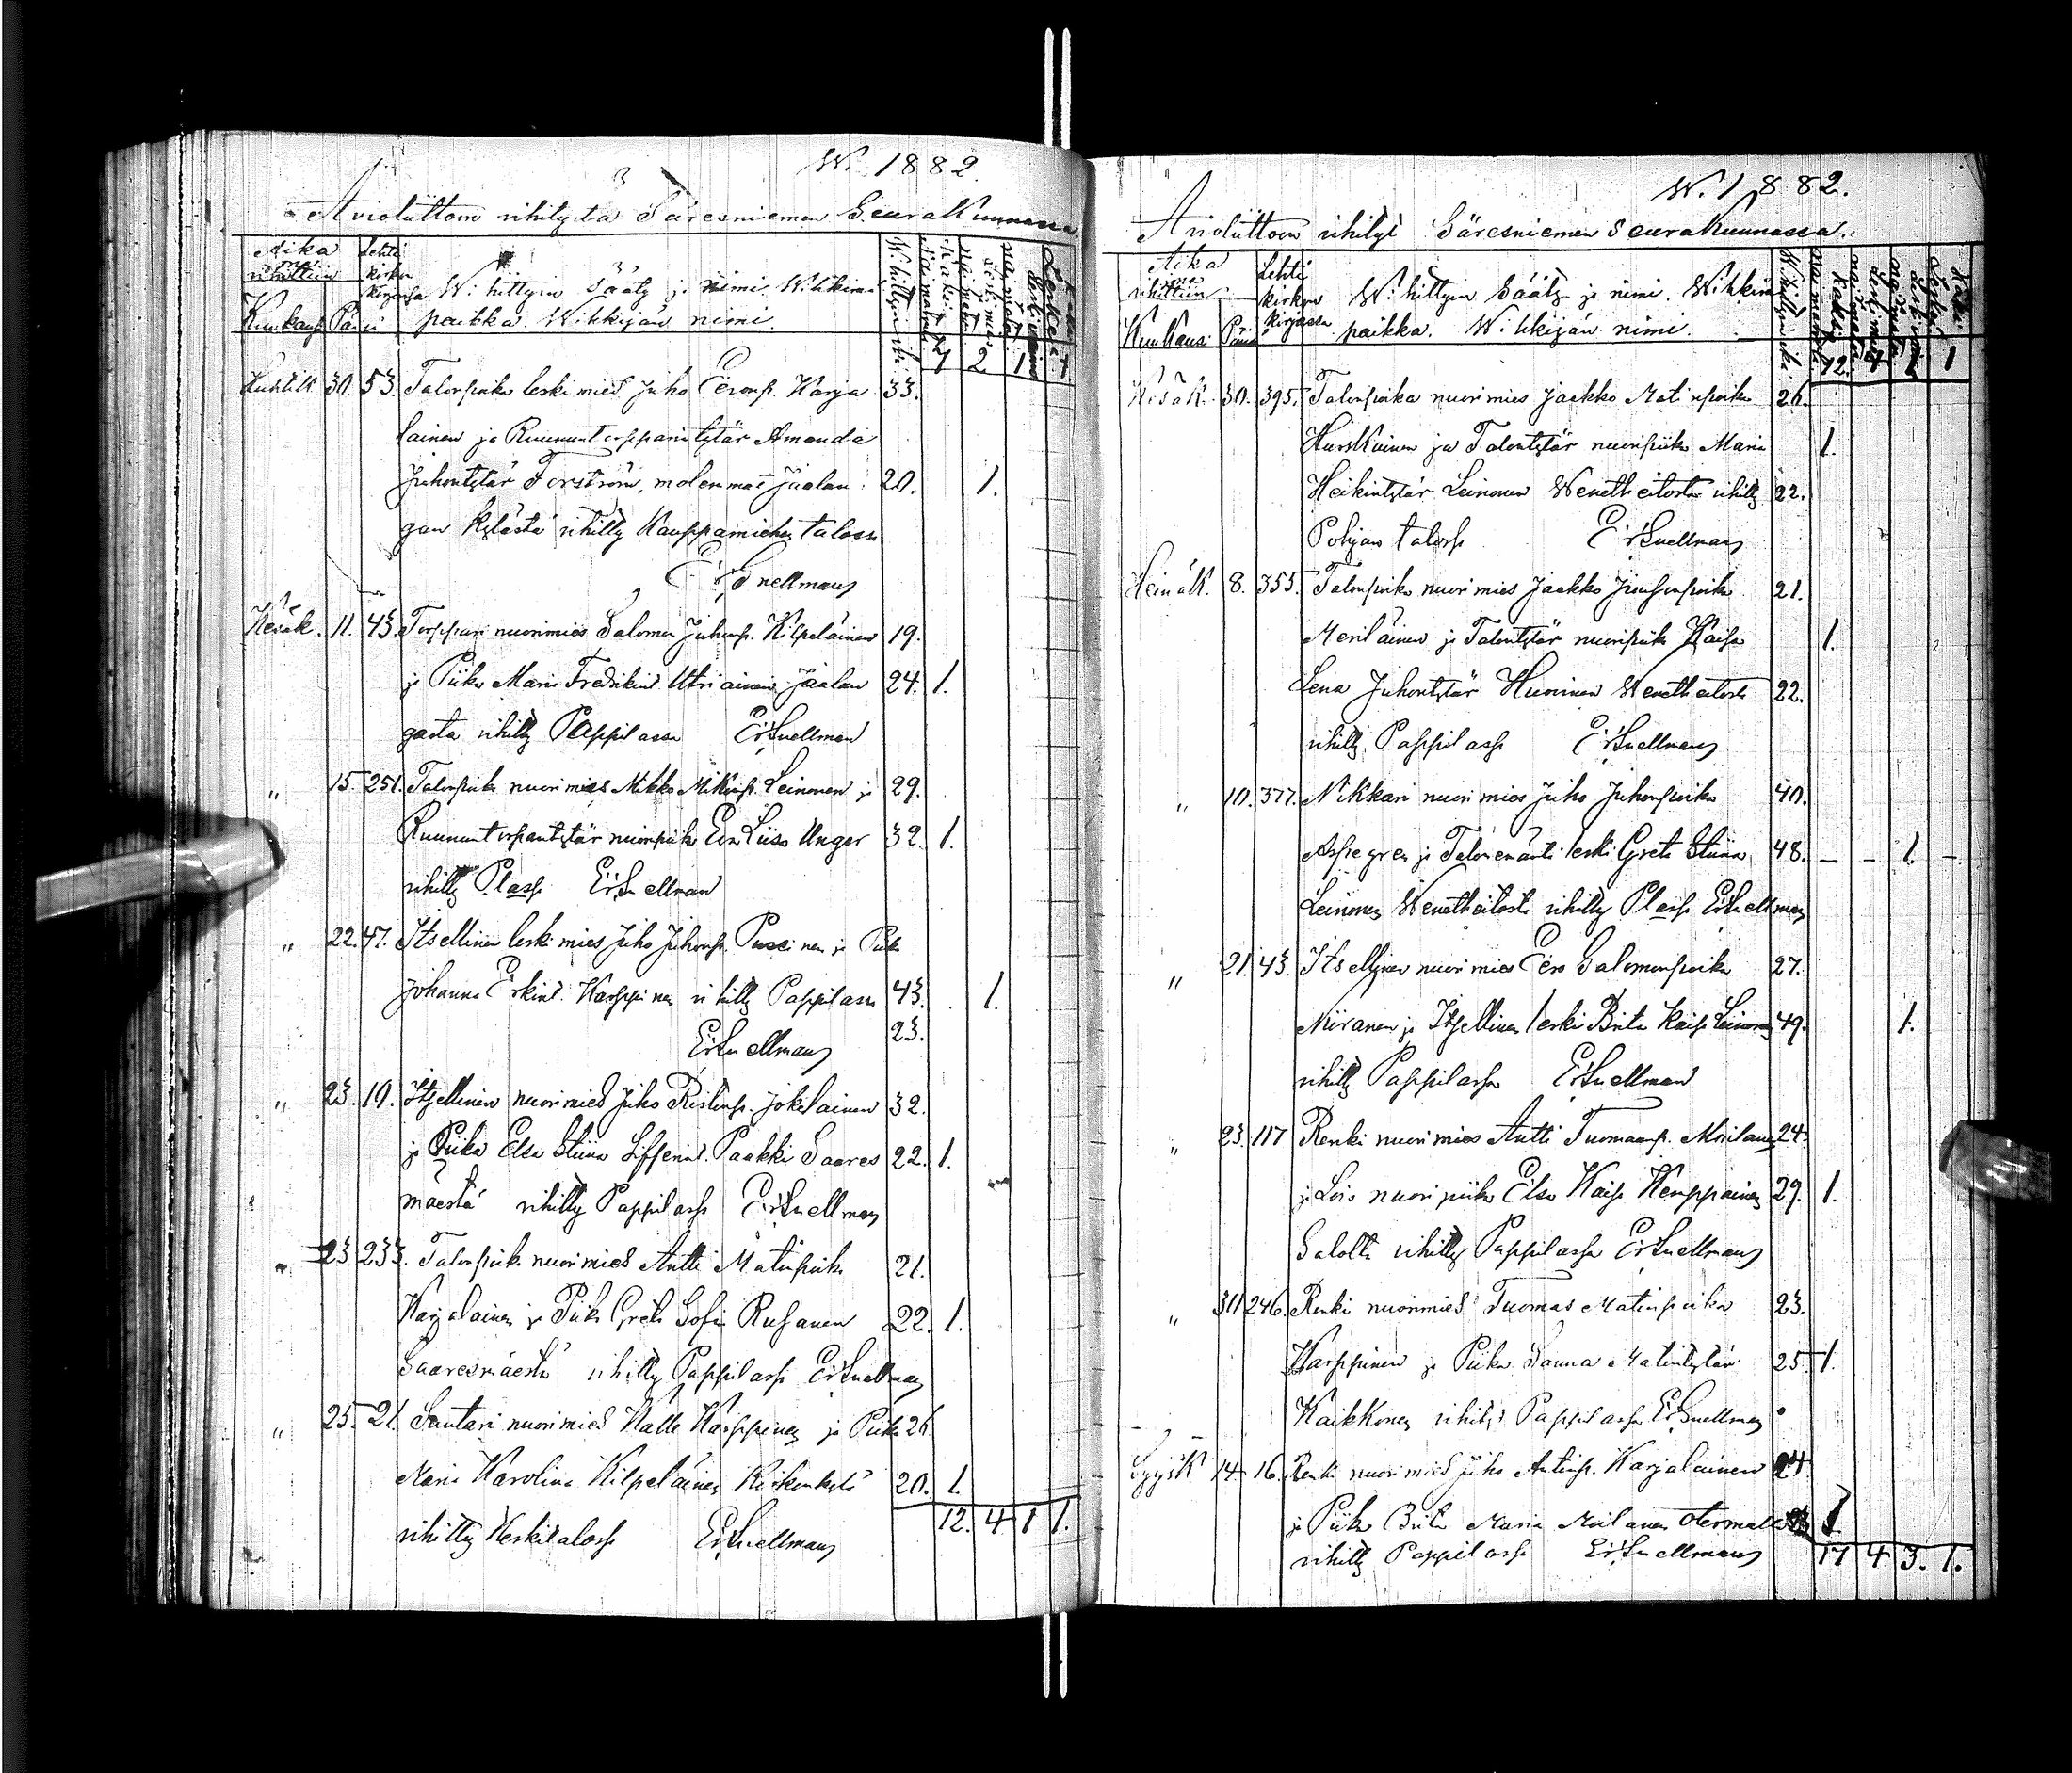 W. 1882.
Avioliittoon vihityitä Säresniemen Seurakunnassa.
Aika
vihittiin
Lehti
kirkon
kirjassa
W:hittyin Sääty ja nimi. Wihkimä
Kuukausi Päi
paikka. Wihkijän nimi.
7 2 1
Huhtik 30. 53. Talonpoika leskimies Juho Eeronp. Karja 33.
lainen ja Ruununtorpparintytär Amanda
Juhontytär Forström, molemmat Jaalan 20. 1.
gan kylästä vihitty Kauppamiehen talossa
Er. Snellman
Kesäk. 11. 43. Torppari nuorimies Salomon Juhonp. Kilpeläinen 19.
ja Piika Maria Fredrikint. Utriainen Jaalan 24. 1.
gasta vihitty Pappilassa Er. Snellman
" 15. 251. Talonpoika nuorimies Mikko Mikonp. Leinonen ja 29.
Ruununtorpantytär nuoripiika Eva Liisa Unger 32. 1.
vihitty Plassa Er. Snellman
" 22. 47. Itsellinen leskimies Juho Juhonp. ja Piika
Johanna Erkint. Karppinen vihitty Pappilassa 43. 1.
Er. Snellman 23.
" 23. 19. Itsellinen nuorimies Juho Ristonp. Jokelainen 32.
ja Piika Elsa Stiina Paakki Saares 22. 1.
mäestä vihitty Pappilassa Er. Snellman
" 23 233. Talonpoika nuorimies Antti Matinpoika 21.
Karjalainen ja Piika Greta Sofia Rusanen 22. 1.
Saaresmäestä vihitty Pappilassa Er. Snellman
" 25. 21. Suutari nuorimies Kalle Karppinen ja Piika 26
Maria Karolina Kilpeläinen Kirkonkylä 20. 1.
12. 4 1 1.
vihitty Keskitalossa Er. Snellman
W. 1882.
Avioliittoon vihityt Säresniemen Seurakunnassa.
Aika
vihittiin
Lehti
kirkon
kirjassa
W:hittyin Sääty ja nimi. Wihkimä
Kuukausi Päivä
paikka. Wihkijän nimi.
12 4 1 1
Kesäk. 30. 395. Talonpoika nuorimies Jaakko Matinpoika 26.
Hurskainen ja Talontytär nuoripiika Maria 1.
Heikintytär Leinonen Wenetheitosta vihitty 22.
Pohjan talossa Er. Snellman
Heinäk. 8. 355. Talonpoika nuorimies Jaakko Juhonpoika 21.
Meriläinen ja Talontytär nuoripiika Kaisa 1.
Lena Juhontytär Huovinen Wenetheitosta 22.
vihitty Pappilassa Er. Snellman
" 10. 377. Nikkari nuorimies Juho Juhonpoika 40.
Aspegren ja Talonemäntä leski Greta Stiina 48. — — 1. —
Leinonen Wenetheitosta vihitty Plassa Er. Snellman
" 21. 43. Itsellinen nuorimies Eero Salomonpoika 27.
Niiranen ja Itsellinen leski Brita Kaisa Leinonen 49. 1.
vihitty Pappilassa Er. Snellman
" 23. 117 Renki nuorimies Antti Tuomaanp. Moilanen 24.
ja Lois nuoripiika Elsa Kaisa Kemppainen 29. 1.
Salolta vihitty Pappilassa Er. Snellman
" 30 246. Renki nuorimies Tuomas Matinpoika 23.
Karppinen ja Piika Sanna Matintytär 25. 1.
Kaikkonen vihityt Pappilassa Er. Snellman
Syysk 14 16. Renki nuorimies Juho Antinp. Karjalainen 24.
ja Piika Brita Maria Moilanen Otermalta 1
17 4 3. 1.
vihitty Pappilassa Er. Snellman